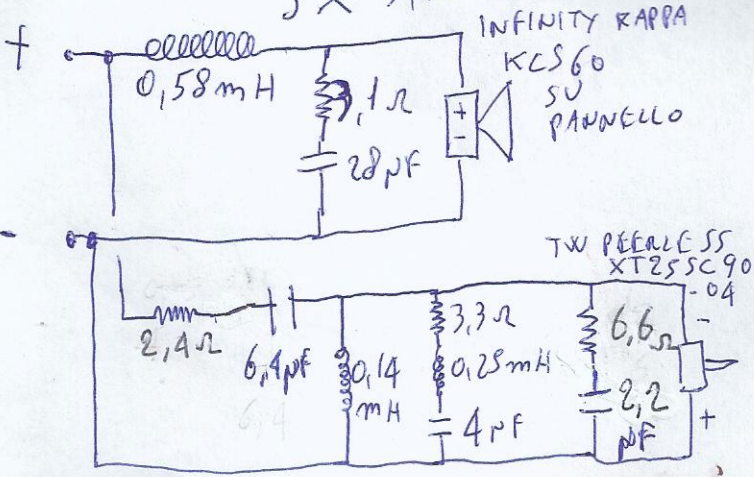 INFINITY KAPPA
KCS60
SU
PANNELLO
+
0,58mH
3,1Ω
28µF
+
-
-
TW PEERLESS
XT25SC90
-04
2,4Ω
6,4µF
0,14
mH
3,3Ω
0,25mH
4µF
6,6Ω
2,2
µF
-
+